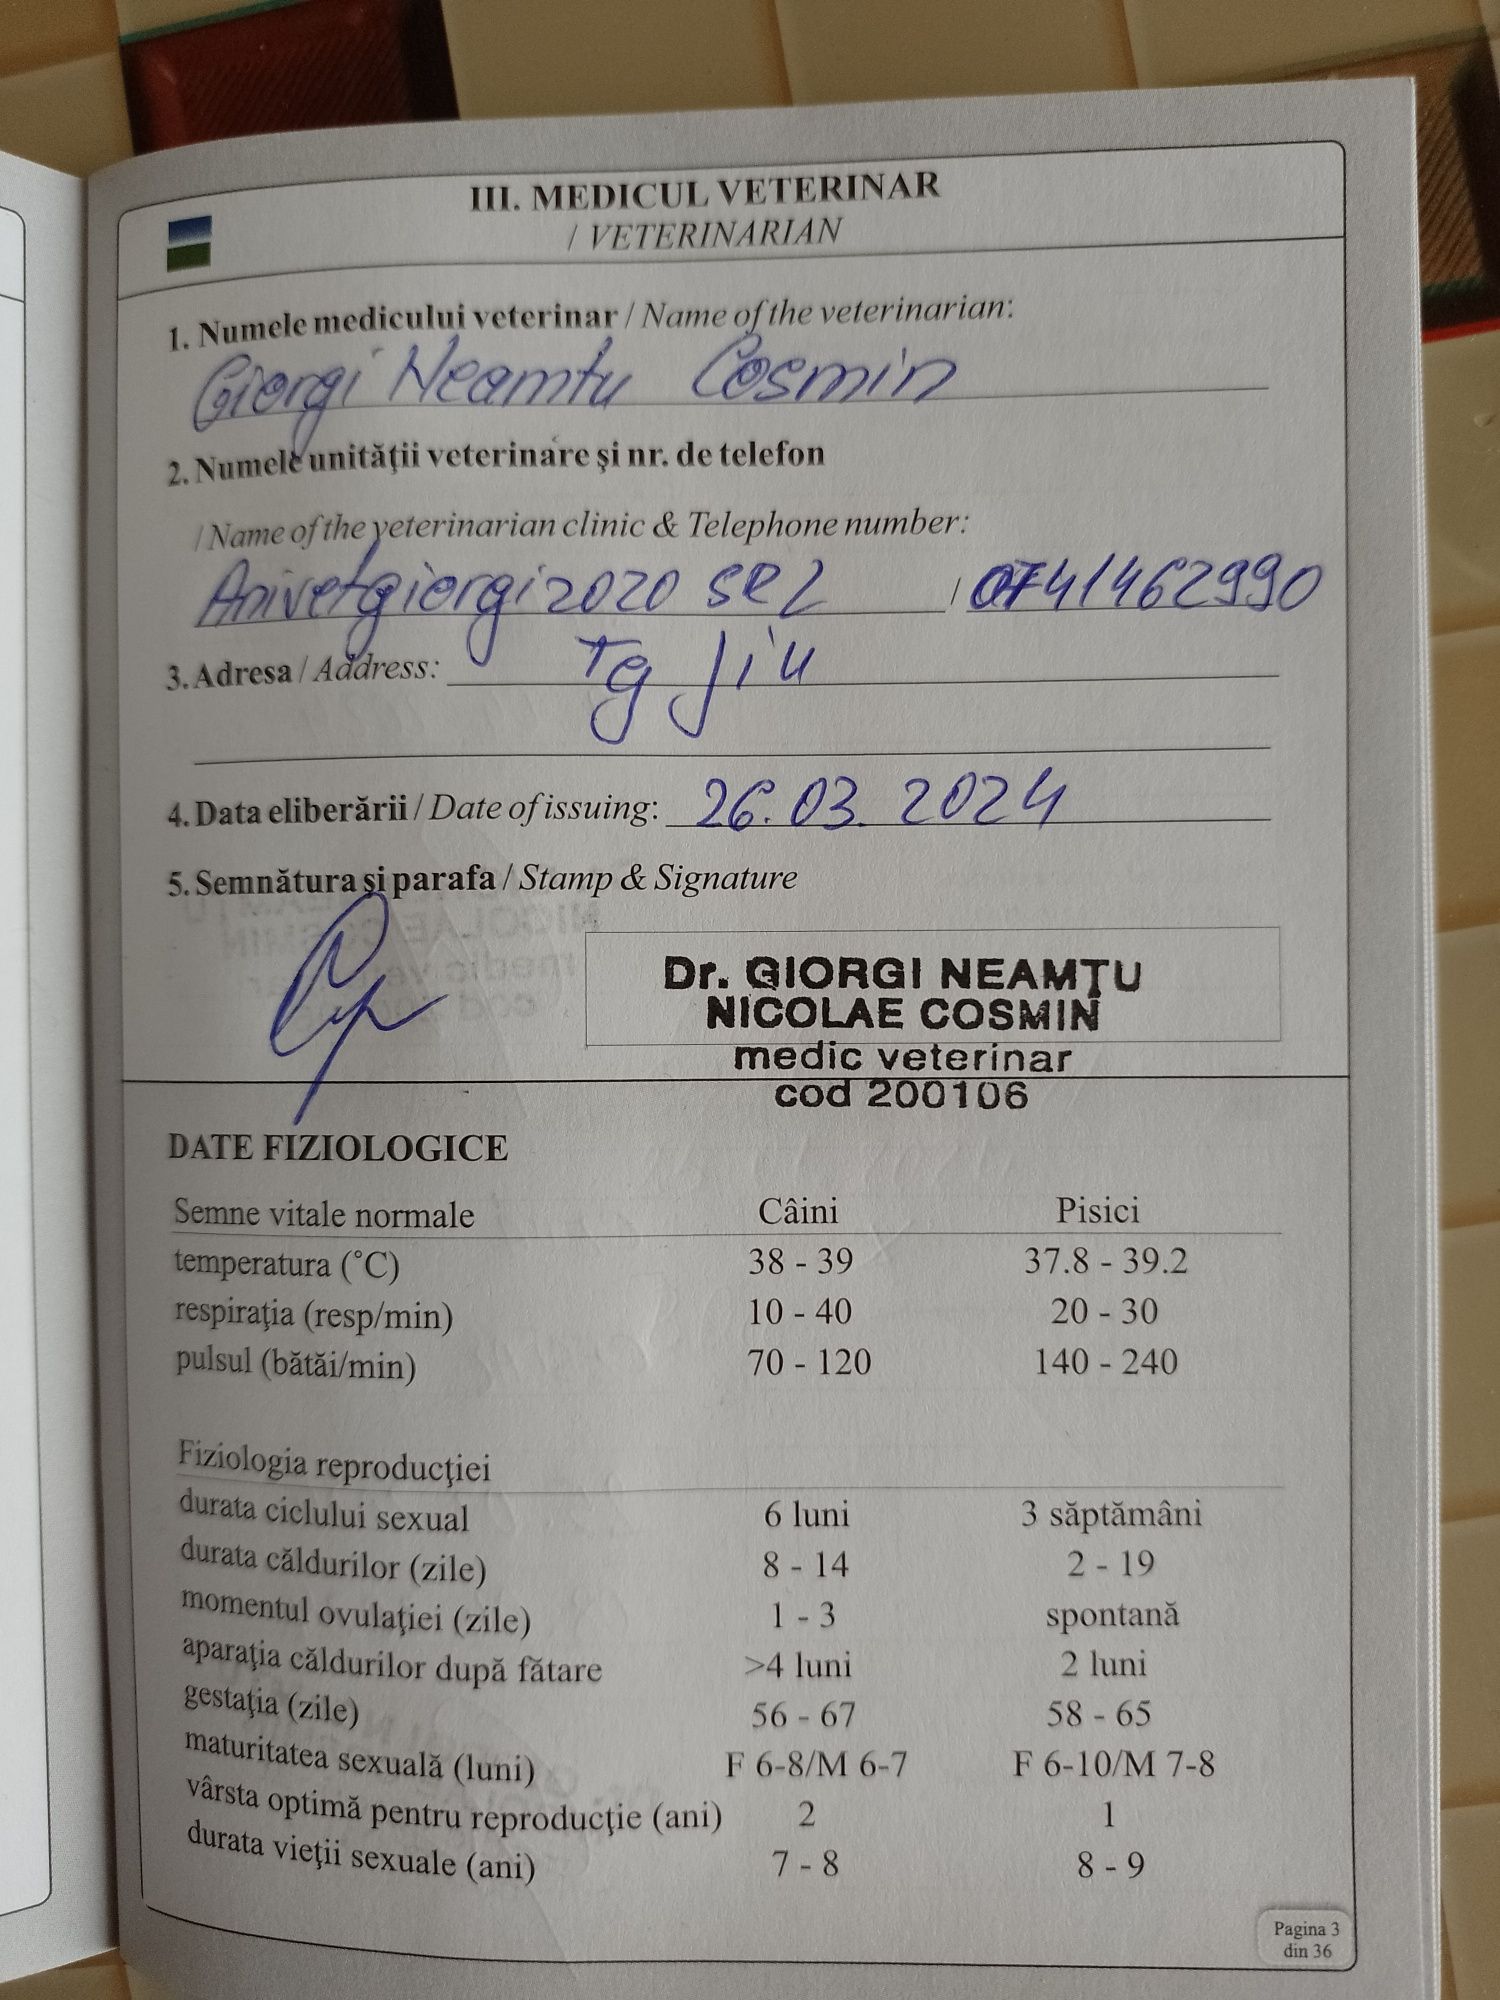 III. MEDICUL VETERINAR
/ VETERINARIAN
1. Numele medicului veterinar / Name of the veterinarian:
Giorgi Neamtu Cosmin
2. Numele unităţii veterinare şi nr. de telefon
/ Name of the veterinarian clinic & Telephone number:
Anivetgiorgi2020 SRL / 0741462990
3. Adresa / Address: Tg Jiu
4. Data eliberării / Date of issuing: 26.03.2024
5. Semnătura şi parafa / Stamp & Signature
Dr. GIORGI NEAMŢU
NICOLAE COSMIN
medic veterinar
cod 200106
DATE FIZIOLOGICE
Semne vitale normale Câini Pisici
temperatura (°C) 38 - 39 37.8 - 39.2
respiraţia (resp/min) 10 - 40 20 - 30
pulsul (bătăi/min) 70 - 120 140 - 240
Fiziologia reproducţiei
durata ciclului sexual 6 luni 3 săptămâni
durata căldurilor (zile) 8 - 14 2 - 19
momentul ovulaţiei (zile) 1 - 3 spontană
aparaţia căldurilor după fătare >4 luni 2 luni
gestaţia (zile) 56 - 67 58 - 65
maturitatea sexuală (luni) F 6-8/M 6-7 F 6-10/M 7-8
vârsta optimă pentru reproducţie (ani) 2 1
durata vieţii sexuale (ani) 7 - 8 8 - 9
Pagina 3
din 36